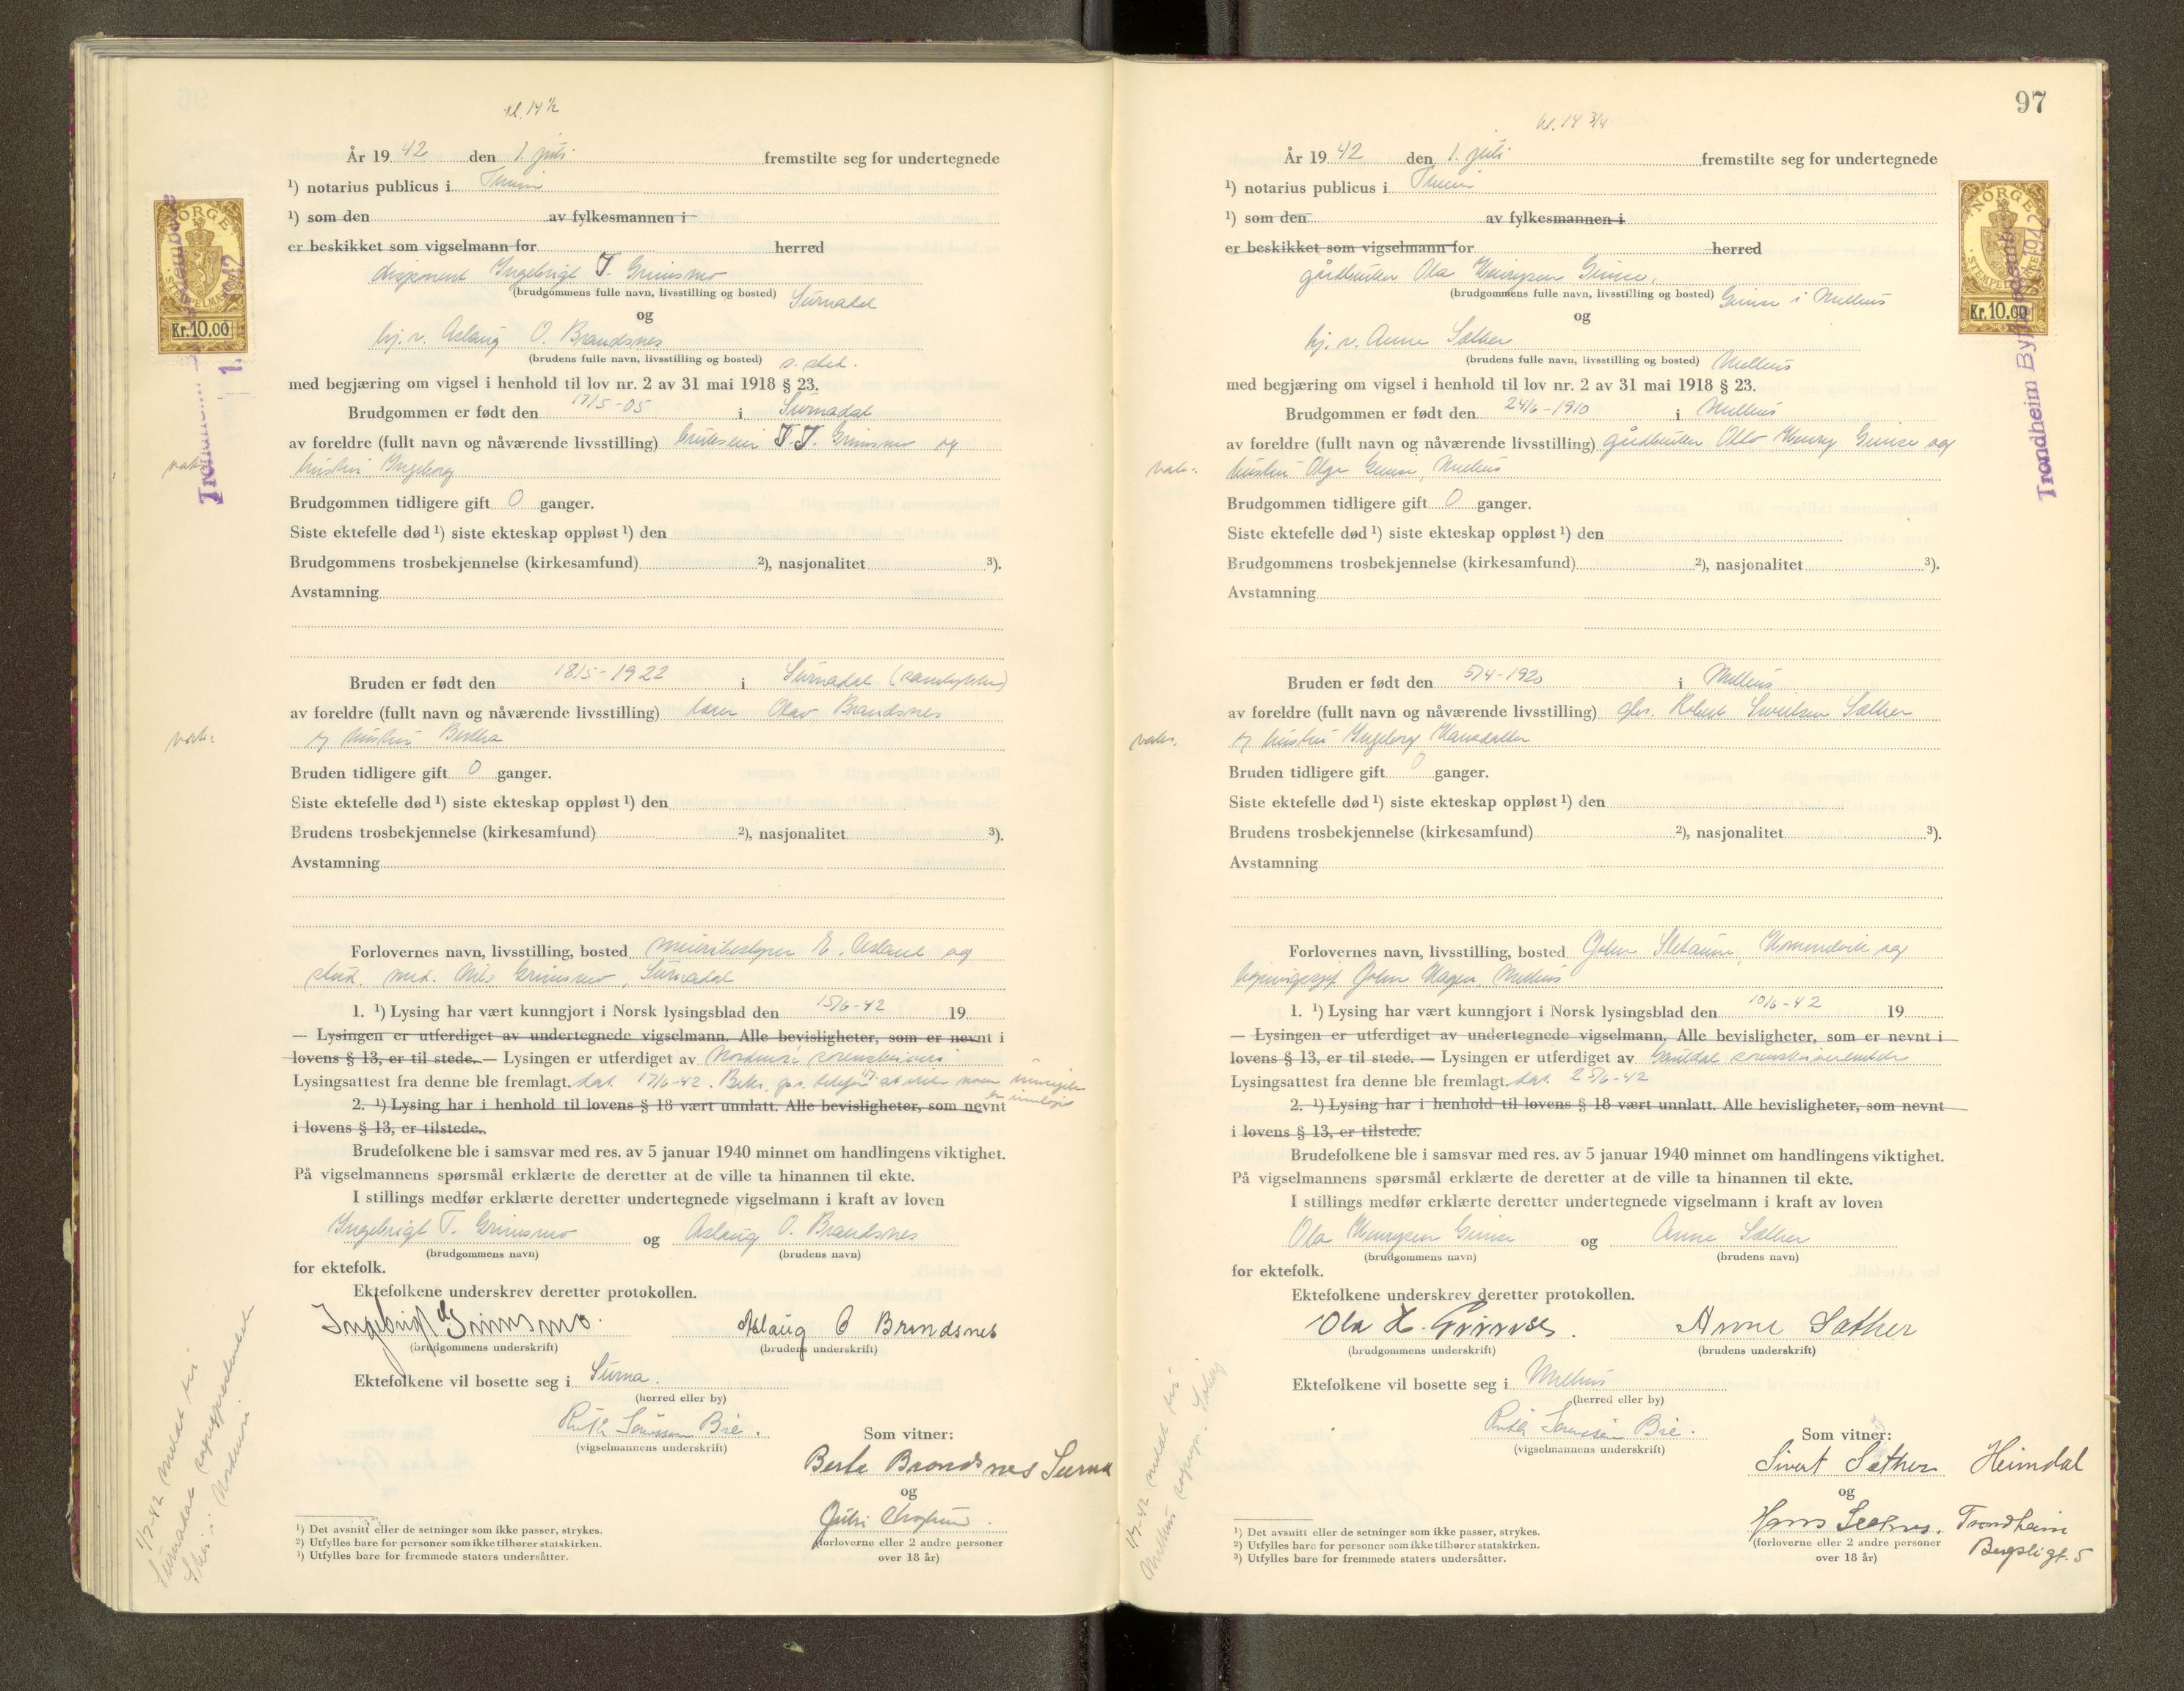 kl. 14 1/2
År 19 42 den 1. juli fremstilte seg for undertegnede
¹) notarius publicus i
¹) som den av fylkesmannen i
er beskikket som vigselmann for herred
disponent Ingebrigt T. Grimsmo
(brudgommens fulle navn, livsstilling og bosted) Surnadal
og
hj. v. Aslaug O. Brandsnes
(brudens fulle navn, livsstilling og bosted) s. sted.
med begjæring om vigsel i henhold til lov nr. 2 av 31 mai 1918 § 23.
Brudgommen er født den 17/5-05 i Surnadal
av foreldre (fullt navn og nåværende livsstilling) T. T. Grimsmo og
hustru Ingeborg
Brudgommen tidligere gift 0 ganger.
Siste ektefelle død ¹) siste ekteskap oppløst ¹) den
Brudgommens trosbekjennelse (kirkesamfund) ²), nasjonalitet ³).
Avstamning
Bruden er født den 18/5-1922 i Surnadal
av foreldre (fullt navn og nåværende livsstilling) lærer Olav Brandsnes
og hustru Bertha
Bruden tidligere gift 0 ganger.
Siste ektefelle død ¹) siste ekteskap oppløst ¹) den
Brudens trosbekjennelse (kirkesamfund) ²), nasjonalitet ³).
Avstamning
Forlovernes navn, livsstilling, bosted meieribestyrer E. Åsland og
stud. med. Nils Grimsmo, Surnadal
1. ¹) Lysing har vært kunngjort i Norsk lysingsblad den 15/6-42 19
— Lysingen er utferdiget av undertegnede vigselmann. Alle bevisligheter, som er nevnt i
lovens § 13, er til stede. — Lysingen er utferdiget av Nordmøre sorenskriveri
Lysingsattest fra denne ble fremlagt. dat. 17/6-42.
2. ¹) Lysing har i henhold til lovens § 18 vært unnlatt. Alle bevisligheter, som nevnt
i lovens § 13, er tilstede.
Brudefolkene ble i samsvar med res. av 5 januar 1940 minnet om handlingens viktighet.
På vigselmannens spørsmål erklærte de deretter at de ville ta hinannen til ekte.
I stillings medfør erklærte deretter undertegnede vigselmann i kraft av loven
Ingebrigt T. Grimsmo og Aslaug O. Brandsnes
(brudgommens navn) (brudens navn)
for ektefolk.
Ektefolkene underskrev deretter protokollen.
Ingebrigt Grimsmo. Aslaug O Brandsnes
(brudgommens underskrift) (brudens underskrift)
Ektefolkene vil bosette seg i Surna.
(herred eller by)
Ruth Sørenssen Bie.
(vigselmannens underskrift)
Som vitner:
Berte Brandsnes Surna
og
(forloverne eller 2 andre personer
over 18 år)
¹) Det avsnitt eller de setninger som ikke passer, strykes.
²) Utfylles bare for personer som ikke tilhører statskirken.
³) Utfylles bare for fremmede staters undersåtter.
NORGE
STEMPELMERKE
Kr. 10.00
97
kl. 14 3/4
År 19 42 den 1. juli fremstilte seg for undertegnede
¹) notarius publicus i
¹) som den av fylkesmannen i
er beskikket som vigselmann for herred
gårdbruker Ola Henrysen Gimse,
(brudgommens fulle navn, livsstilling og bosted) Gimse i Melhus
og
hj. v. Anne Sæther
(brudens fulle navn, livsstilling og bosted) Melhus
med begjæring om vigsel i henhold til lov nr. 2 av 31 mai 1918 § 23.
Brudgommen er født den 24/6-1910 i Melhus
av foreldre (fullt navn og nåværende livsstilling) gårdbruker Otto Henry Gimse og
hustru Olga Gimse, Melhus
Brudgommen tidligere gift 0 ganger.
Siste ektefelle død ¹) siste ekteskap oppløst ¹) den
Brudgommens trosbekjennelse (kirkesamfund) ²), nasjonalitet ³).
Avstamning
Bruden er født den 5/4-1920 i Melhus
av foreldre (fullt navn og nåværende livsstilling) Sivertsen Sæther
og hustru Ingeborg Hansdatter
Bruden tidligere gift 0 ganger.
Siste ektefelle død ¹) siste ekteskap oppløst ¹) den
Brudens trosbekjennelse (kirkesamfund) ²), nasjonalitet ³).
Avstamning
Forlovernes navn, livsstilling, bosted John og
John Hagen, Melhus
1. ¹) Lysing har vært kunngjort i Norsk lysingsblad den 10/6-42 19
— Lysingen er utferdiget av undertegnede vigselmann. Alle bevisligheter, som er nevnt i
lovens § 13, er til stede. — Lysingen er utferdiget av Gauldal sorenskriverembete
Lysingsattest fra denne ble fremlagt. dat. 25/6-42
2. ¹) Lysing har i henhold til lovens § 18 vært unnlatt. Alle bevisligheter, som nevnt
i lovens § 13, er tilstede.
Brudefolkene ble i samsvar med res. av 5 januar 1940 minnet om handlingens viktighet.
På vigselmannens spørsmål erklærte de deretter at de ville ta hinannen til ekte.
I stillings medfør erklærte deretter undertegnede vigselmann i kraft av loven
Ola Henrysen Gimse og Anne Sæther
(brudgommens navn) (brudens navn)
for ektefolk.
Ektefolkene underskrev deretter protokollen.
Ola H. Gimse. Anne Sæther
(brudgommens underskrift) (brudens underskrift)
Ektefolkene vil bosette seg i Melhus
(herred eller by)
Ruth Sørenssen Bie.
(vigselmannens underskrift)
Som vitner:
Sivert Sæther Heimdal
og
Hans Trondheim
(forloverne eller 2 andre personer
over 18 år)
¹) Det avsnitt eller de setninger som ikke passer, strykes.
²) Utfylles bare for personer som ikke tilhører statskirken.
³) Utfylles bare for fremmede staters undersåtter.
NORGE
STEMPELMERKE
Kr. 10.00